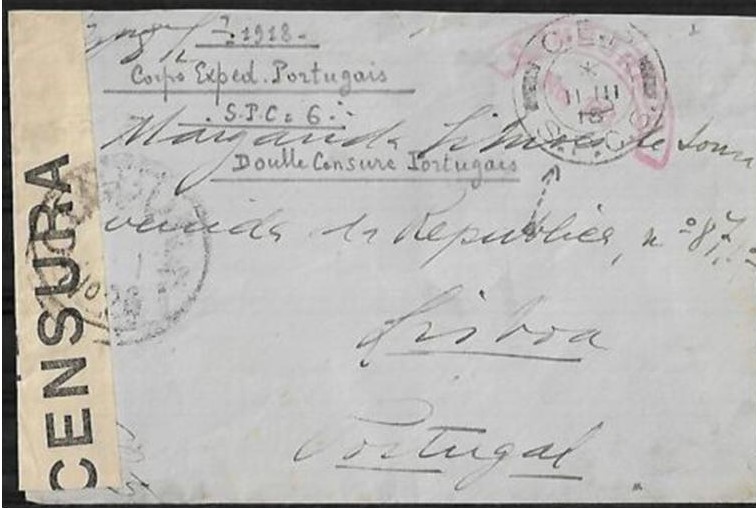 1918 -
Corps Exped. Portugais
S.P.C. 6.
C.E.P.
*
11 III
18
S.P.C. 6
Margarida de Sousa
Double Censure Portugais
Avenida da Republica, nº 87, 1º
Lisboa
Portugal
CENSURA